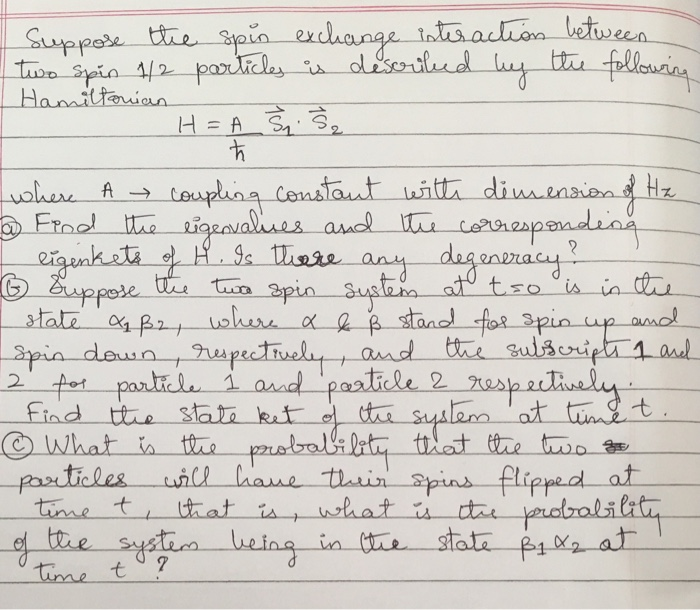 Suppose the spin exchange interaction between
two spin 1/2 particles is described by the following
Hamiltonian
H = A/ħ S⃗₁ · S⃗₂
where A → coupling constant with dimension of Hz
ⓐ Find the eigenvalues and the corresponding
eigenkets of H. Is there any degeneracy?
ⓑ Suppose the two spin system at t=0 is in the
state α₁ β₂, where α & β stand for spin up and
spin down, respectively, and the subscripts 1 and
2 for particle 1 and particle 2 respectively.
Find the state ket of the system at time t.
ⓒ What is the probability that the two
particles will have their spins flipped at
time t, that is, what is the probability
of the system being in the state β₁ α₂ at
time t ?